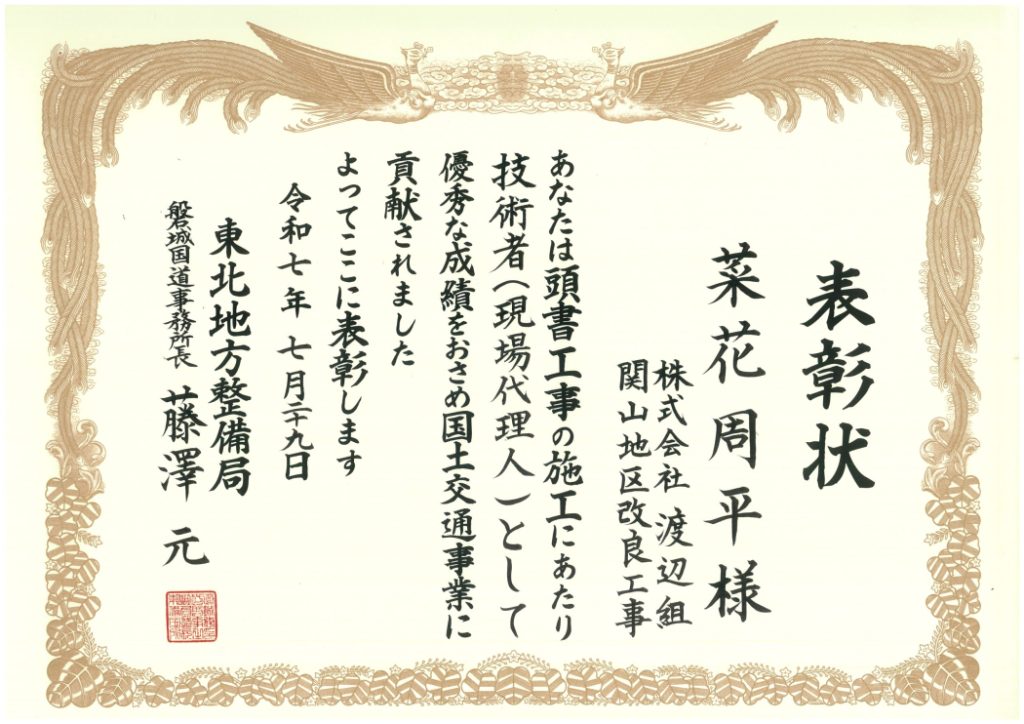 表彰状
菜花周平様
株式会社 渡辺組
関山地区改良工事
あなたは頭書工事の施工にあたり
技術者(現場代理人)として
優秀な成績をおさめ国土交通事業に
貢献されました
よってここに表彰します
令和七年 七月二十九日
東北地方整備局
磐城国道事務所長 藤澤 元